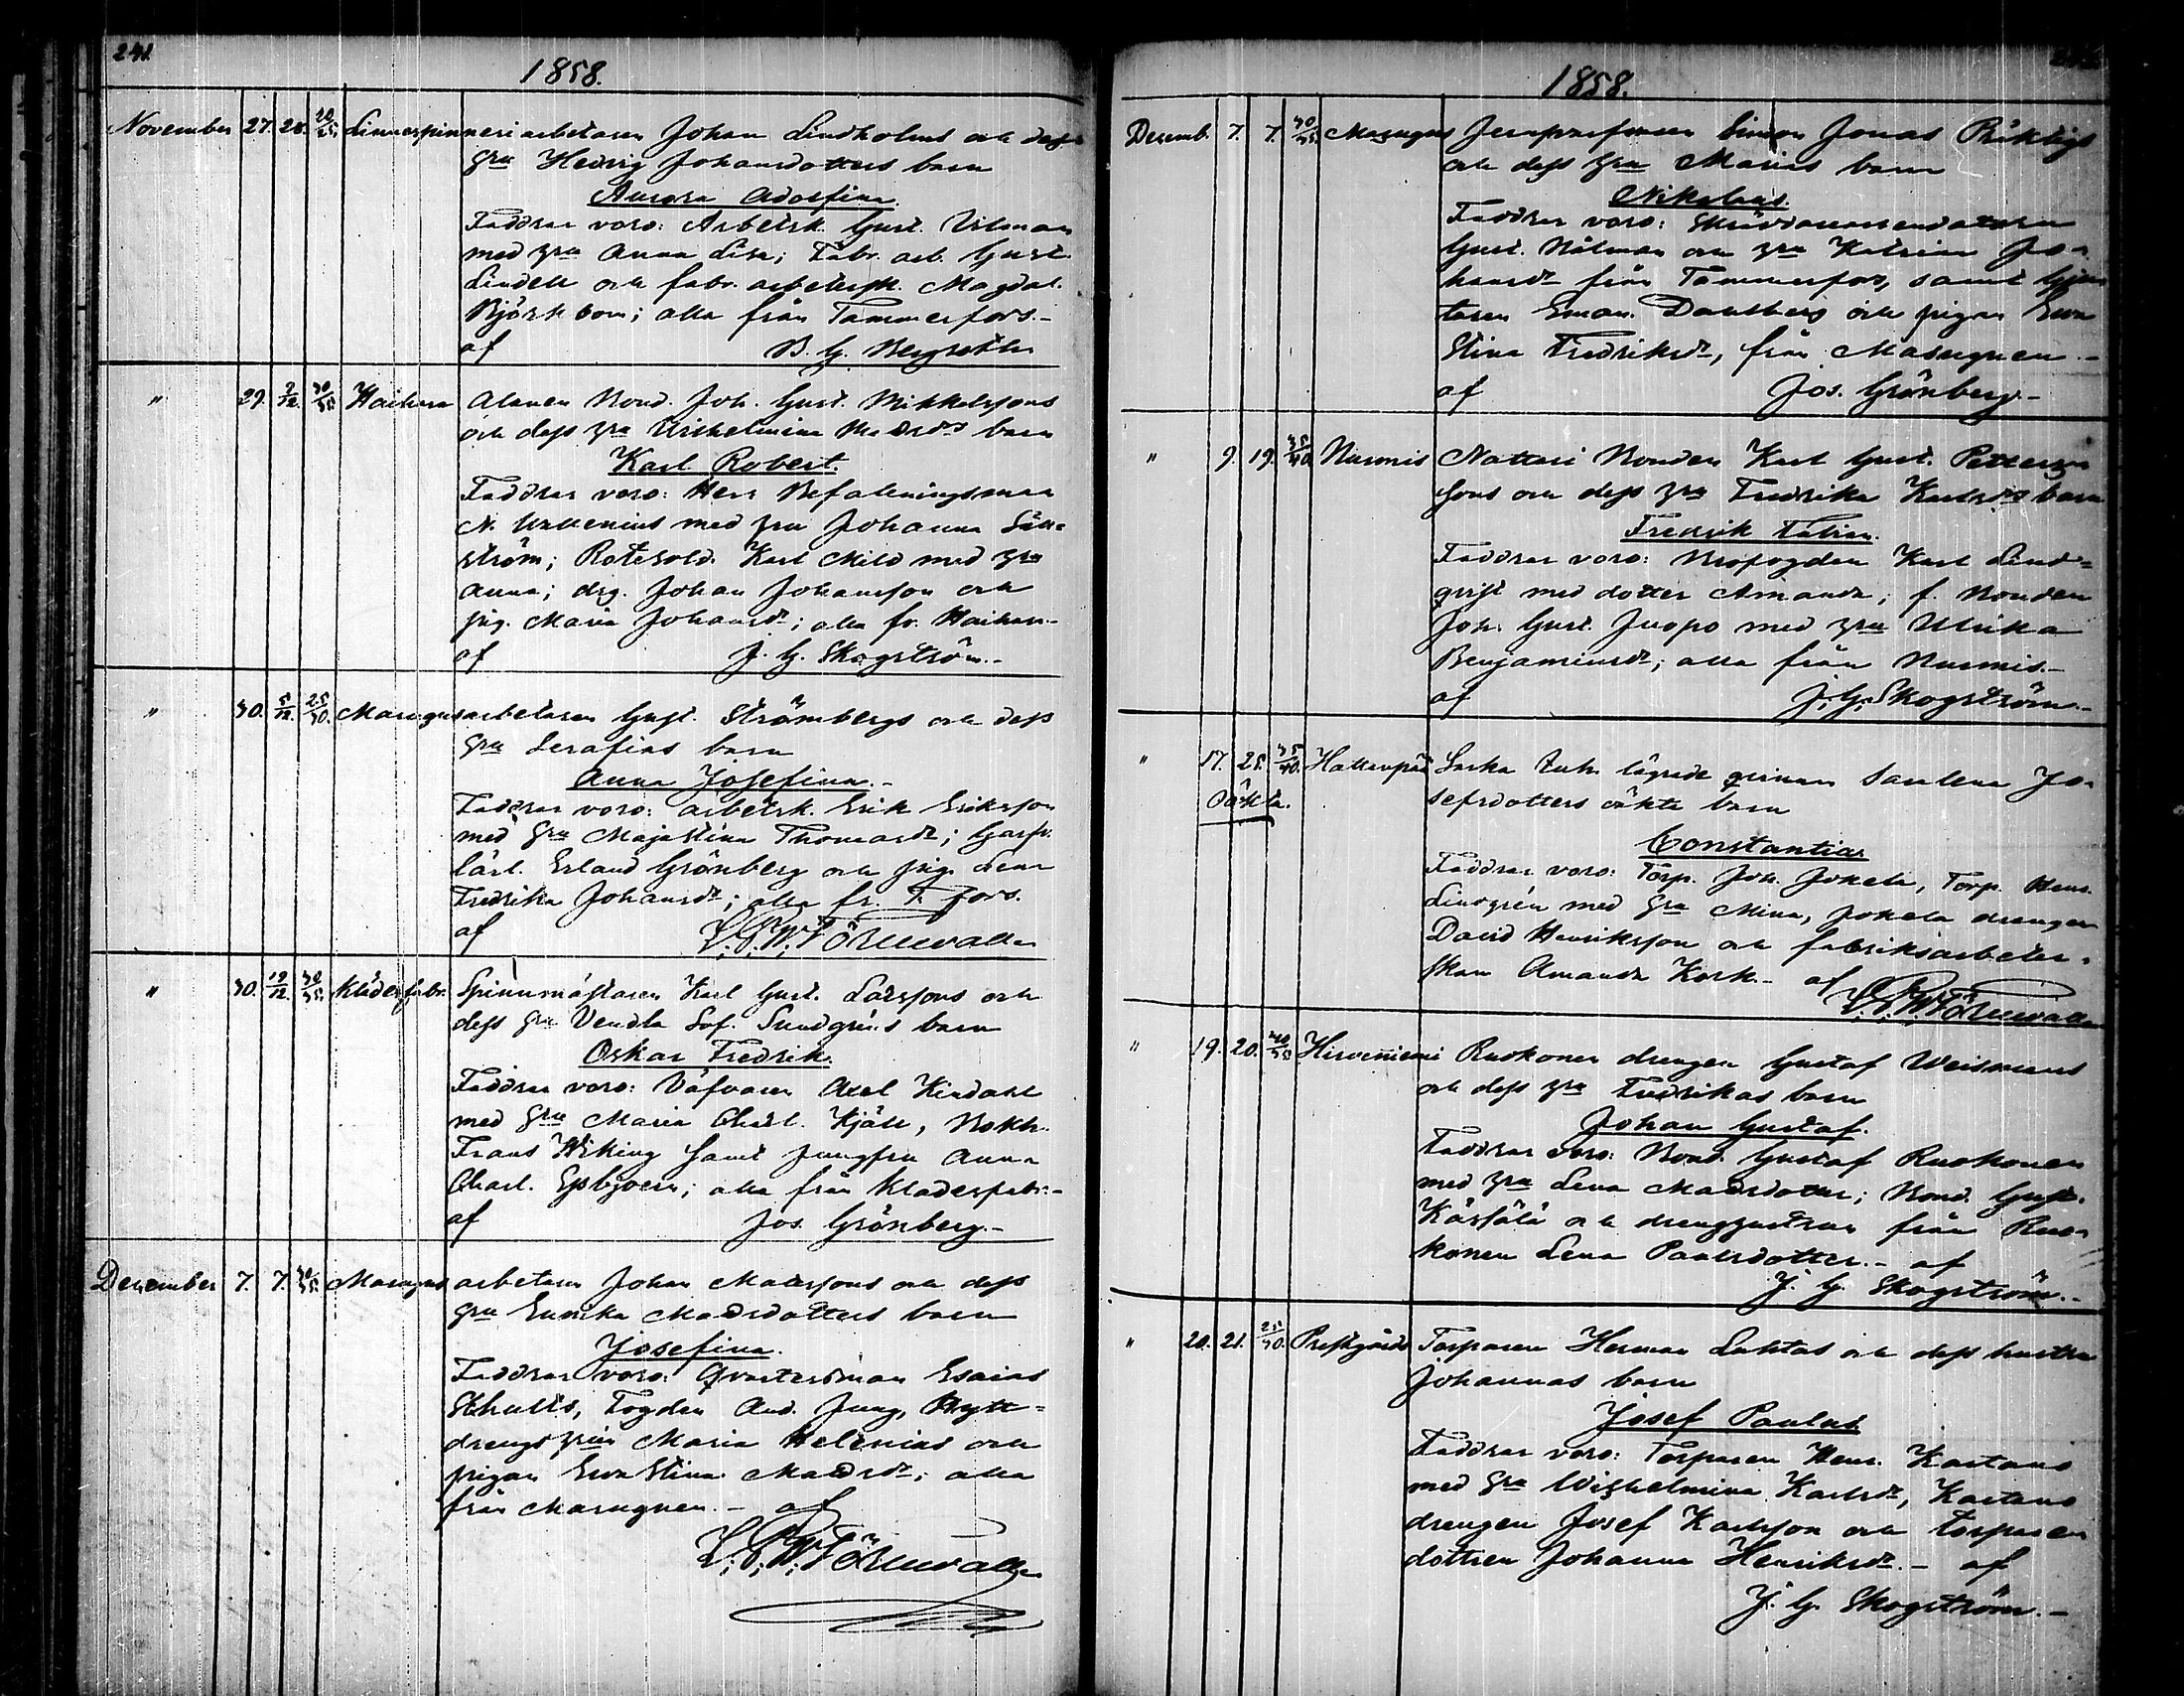 241
1858.
November 27. 28. 20/25. Linnespinneri arbetaren Johan Lindholms och dess
hru Hedvig Johansdotters barn
Aurora Adolfina.
Faddrar voro: Arbetsk. Gust. Vilman
med hru Anna Lisa; Fabr. arb. Gust.
Lindell och fabr. arbetersk. Magdal.
Björkbom; alla från Tammerfors.-
af B. G. Bergroth
" 29. 2/12. 30/35 Haihara Alanen Bond. Joh. Gust. Mikkelssons
och dess hru Wilhelmina Matsds barn
Karl Robert.
Faddrar voro: Herr Befalningsman
N. Wallenius med fru Johanna Säll=
ström; Rotesold. Karl Mild med hru
Anna; drg. Johan Johansson och
pig. Maria Johansdr; alla fr. Haihara.-
af J. G. Skogström.-
" 30. 5/12. 25/30. Masugns arbetaren Gust. Strömbergs och dess
hru Serafias barn
Anna Josefina.-
Faddrar voro: arbetsk. Erik Eriksson
med hru Majastina Thomasdr; Garfv.
lärl. Erland Grönberg och pig. Lena
Fredrika Johansdr; alla fr. T.fors.
af Törnevall
" 30. 19/12. 30/35. Klädesfabr. Spinnmästaren Karl Gust. Larssons och
dess hru Vendla Sof. Sundgréns barn
Oskar Fredrik.
Faddrar voro: Väfvaren Axel Kindahl
med hru Maria Charl. Kjäll, Bokh.
Frans Wiking samt jungfru Anna
Charl. Esbjoern; alla från Klädesfabr.-
af Jos. Grönberg.-
December 7. 7. 30/35. Masugns arbetaren Johan Matssons och dess
hru Eunika Matsdotters barn
Josefina.
Faddrar voro: Qvartersman Esaias
Schulls, Fogden And. Jung, Bytt=
drengs hrun Maria Helenius och
pigan Eva Stina Matsdr; alla
från Masugnen.- af
Törnevall
1858.
Decemb. 7. 7. 30/35. Masugns Simon Jonas
och dess hru Marias barn
Nikolaus.
Faddrar voro:
Gust. Nölman och hru Katrina Jo=
hansdr från Tammerfors, samt
taren Eman. Dahlberg och pigan Eva
Stina Fredriksdr, från Masugnen.-
af Jos. Grönberg.-
" 9. 19. 35/40. Nurmis Nattari Bonden Karl Gust. Petters=
sons och dess hru Fredrika Karlsdrs barn
Fredrik Fabian.
Faddrar voro: Brofogden Karl Lind=
qvist med dotter Amanda; f. Bonden
Joh. Gust. Juopo med hru Ulrika
Benjaminsdr; alla från Nurmis.-
af J. G. Skogström.-
" 17. 25. 35/40. Hallenpää Saulena Jo=
Oäkta. sefsdotters oäkta barn
Constantia
Faddrar voro: Torp. Joh. Jokela, Torp. Henr.
Lindgrén med hru Mina, Jokela drengen
David Henriksson och fabriksarbeter=
skan Amanda Kork.- af
Törnevall
" 19. 20. 40/50 Hirveniemi Ruokonen drengen Gustaf Weismans
och dess hru Fredrikas barn
Johan Gustaf.
Faddrar voro: Bond. Gustaf Ruokonen
med hru Lena Matsdotter; Bond. Gust.
Kärsälä och drenghustrun från Ruo=
konen Lena Paulsdotter.- af
J. G. Skogström.-
" 20. 21. 25/30. Prestgårds Torparen Herman Lahtas och dess hustru
Johannas barn
Josef Paulus
Faddrar voro: Torparen Henr. Kartano
med hru Wilhelmina Karlsdr, Kartano
drengen Josef Karlsson och torpare
dottren Johanna Henriksdr.- af
J. G. Skogström.-